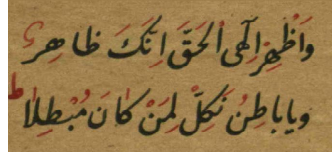 وَاَظْهِرْ اِلٰهِى الْحَقَّ اِنَّكَ ظَاهِرٌ
وَيَا بَاطِنُ نَكِّلْ لِمَنْ كَانَ مُبْطِلَا